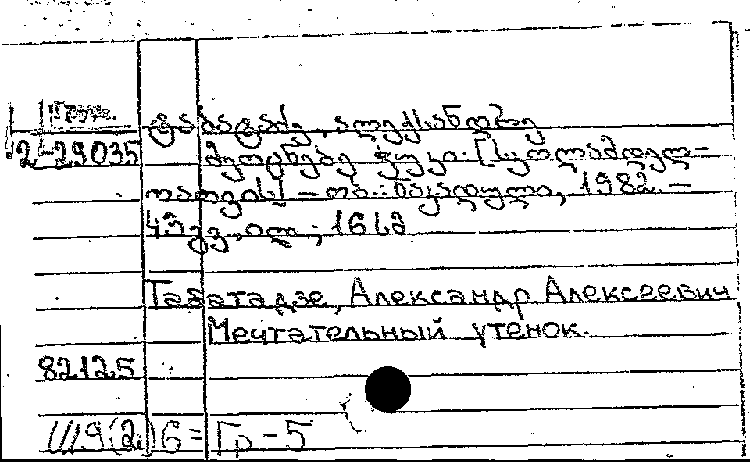 Груз.
2-29035
ტაბატაძე, ალექსანდრე
მეოცნებე ჭუკი: [სკოლამდელ-
თათვის] – თბ.: ნაკადული, 1982. –
43 გვ., ილ.; 16 სმ
Табатадзе, Александр Алексеевич
Мечтательный утенок.
82125
Ш9(2)6=Гр-5